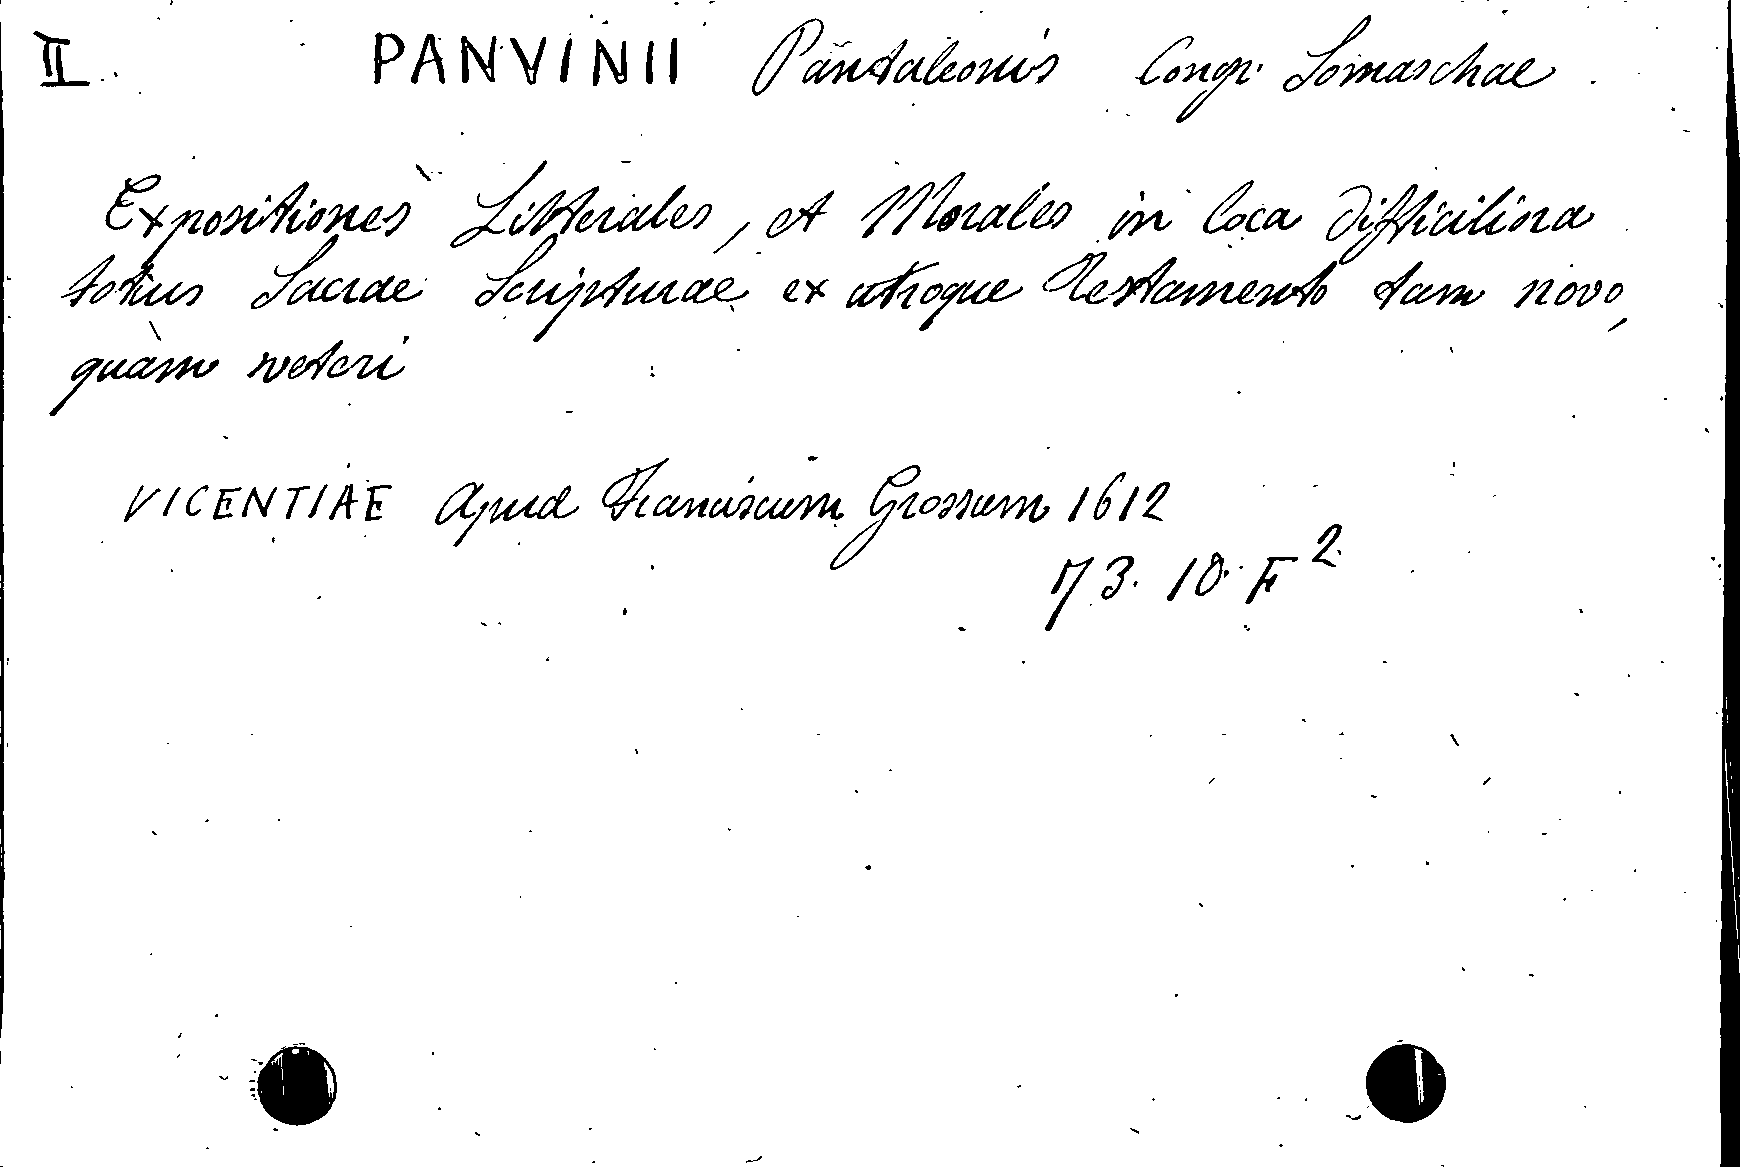 II PANVINII Pantaleonis Congr. Somaschae
Expositiones Litterales, et Morales in loca difficiliora
totius Sacrae Scripturae ex utroque Testamento tam novo,
quàm veteri
VICENTIAE Apud Franciscum Grossum 1612
73. 10. F 2.